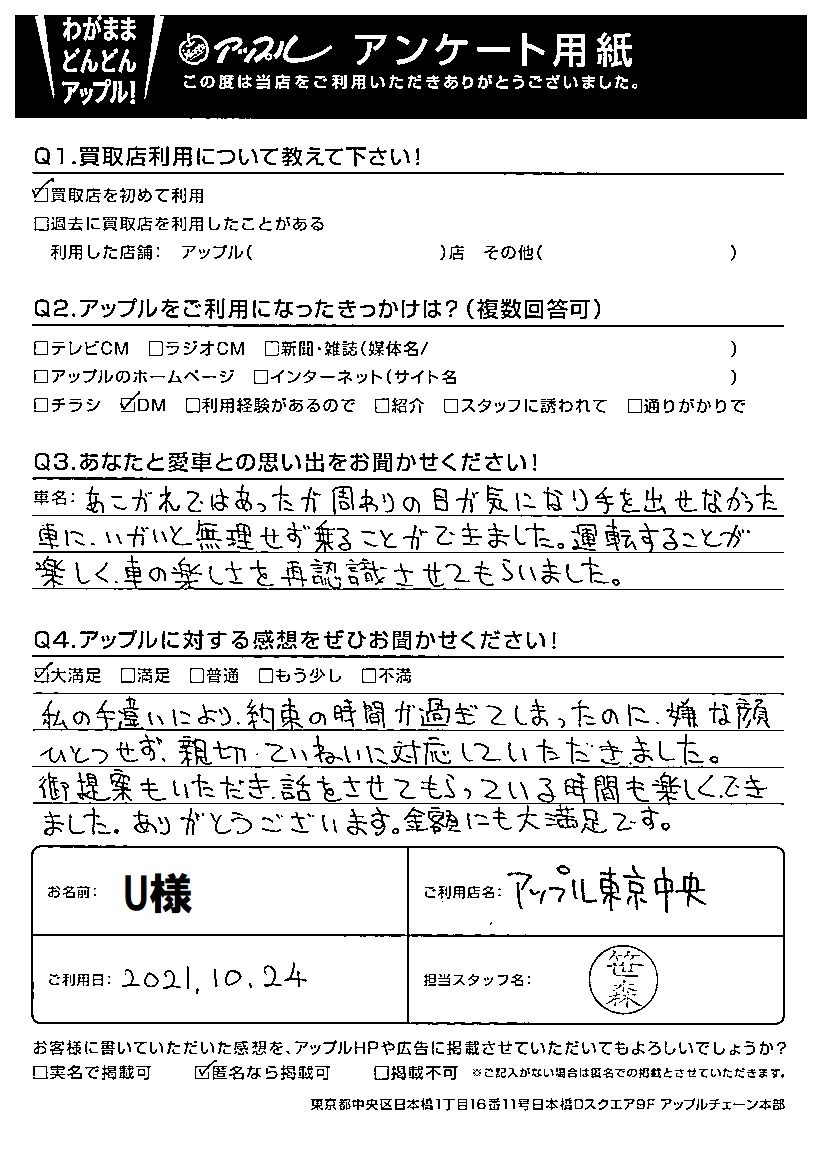 わがまま
どんどん
アップル!
アップル アンケート用紙
この度は当店をご利用いただきありがとうございました。
Q1.買取店利用について教えて下さい!
☑買取店を初めて利用
□過去に買取店を利用したことがある
利用した店舗: アップル( )店 その他( )
Q2.アップルをご利用になったきっかけは?(複数回答可)
□テレビCM □ラジオCM □新聞・雑誌(媒体名/ )
□アップルのホームページ □インターネット(サイト名 )
□チラシ ☑DM □利用経験があるので □紹介 □スタッフに誘われて □通りがかりで
Q3.あなたと愛車との思い出をお聞かせください!
車名: あこがれではあったが周わりの目が気になり手を出せなかった
車に、いがいと無理せず乗ることができました。運転することが
楽しく、車の楽しさを再認識させてもらいました。
Q4.アップルに対する感想をぜひお聞かせください!
☑大満足 □満足 □普通 □もう少し □不満
私の手違いにより、約束の時間が過ぎてしまったのに、嫌な顔
ひとつせず、親切・ていねいに対応していただきました。
御提案もいただき、話をさせてもらっている時間も楽しくでき
ました。ありがとうございます。金額にも大満足です。
お名前: U様
ご利用店名: アップル東京中央
ご利用日: 2021.10.24
担当スタッフ名: 笹森
お客様に書いていただいた感想を、アップルHPや広告に掲載させていただいてもよろしいでしょうか?
□実名で掲載可 ☑匿名なら掲載可 □掲載不可 ※ご記入がない場合は匿名での掲載とさせていただきます。
東京都中央区日本橋1丁目16番11号日本橋Dスクエア9F アップルチェーン本部